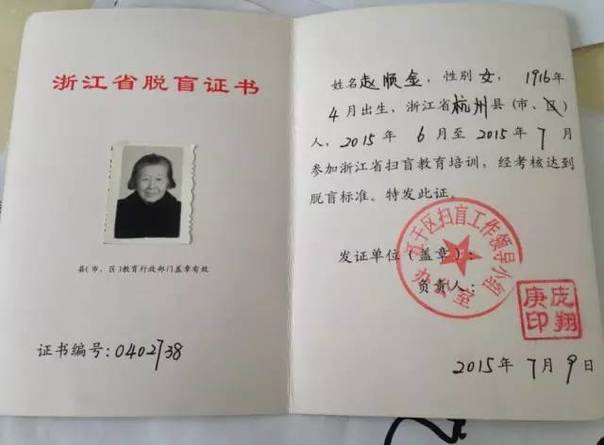 浙江省脱盲证书
县(市、区)教育行政部门盖章有效
证书编号:0402738
姓名赵顺金,性别女,1916年
4月出生,浙江省杭州县(市、区)
人,2015年6月至2015年7月
参加浙江省扫盲教育培训,经考核达到
脱盲标准。特发此证。
发证单位(盖章):
负责人:
江干区扫盲工作领导小组
办公室
庞翔
庚印
2015年7月9日